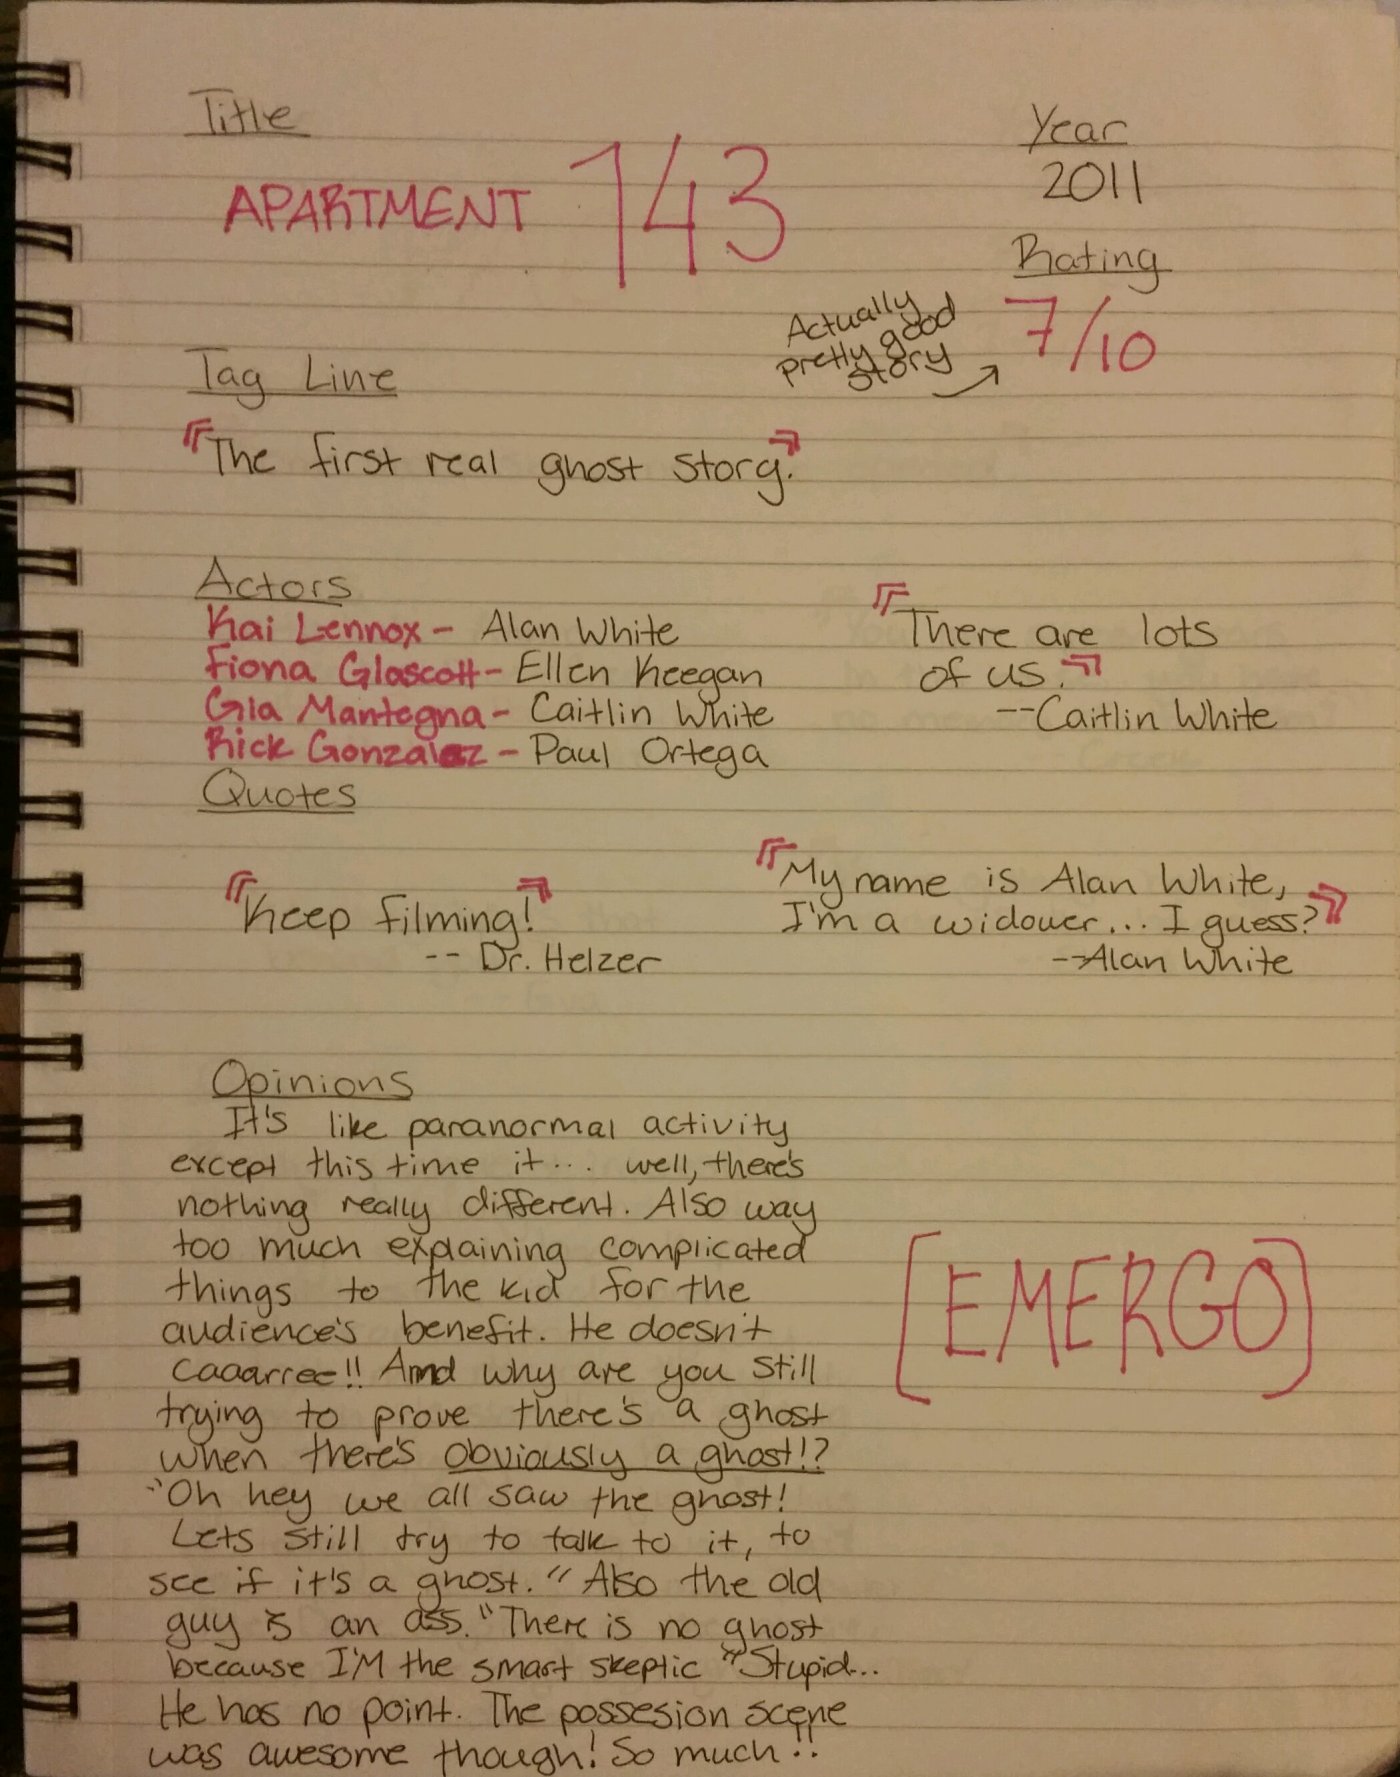 Title
APARTMENT 143
Year
2011
Rating
7/10
Actually
pretty good
story
Tag Line
"The first real ghost story."
Actors
Kai Lennox - Alan White
Fiona Glascott - Ellen Keegan
Gia Mantegna - Caitlin White
Rick Gonzalez - Paul Ortega
"There are lots
of us."
--Caitlin White
Quotes
"Keep filming!"
-- Dr. Helzer
"My name is Alan White,
I'm a widower... I guess?"
--Alan White
Opinions
It's like paranormal activity
except this time it... well, there's
nothing really different. Also way
too much explaining complicated
things to the kid for the
audience's benefit. He doesn't
caaarree!! And why are you still
trying to prove there's a ghost
when there's obviously a ghost!?
"Oh hey we all saw the ghost!
Lets still try to talk to it, to
see if it's a ghost." Also the old
guy is an ass. "There is no ghost
because I'M the smart skeptic" Stupid...
He has no point. The possesion scene
was awesome though! So much!!
[EMERGO]